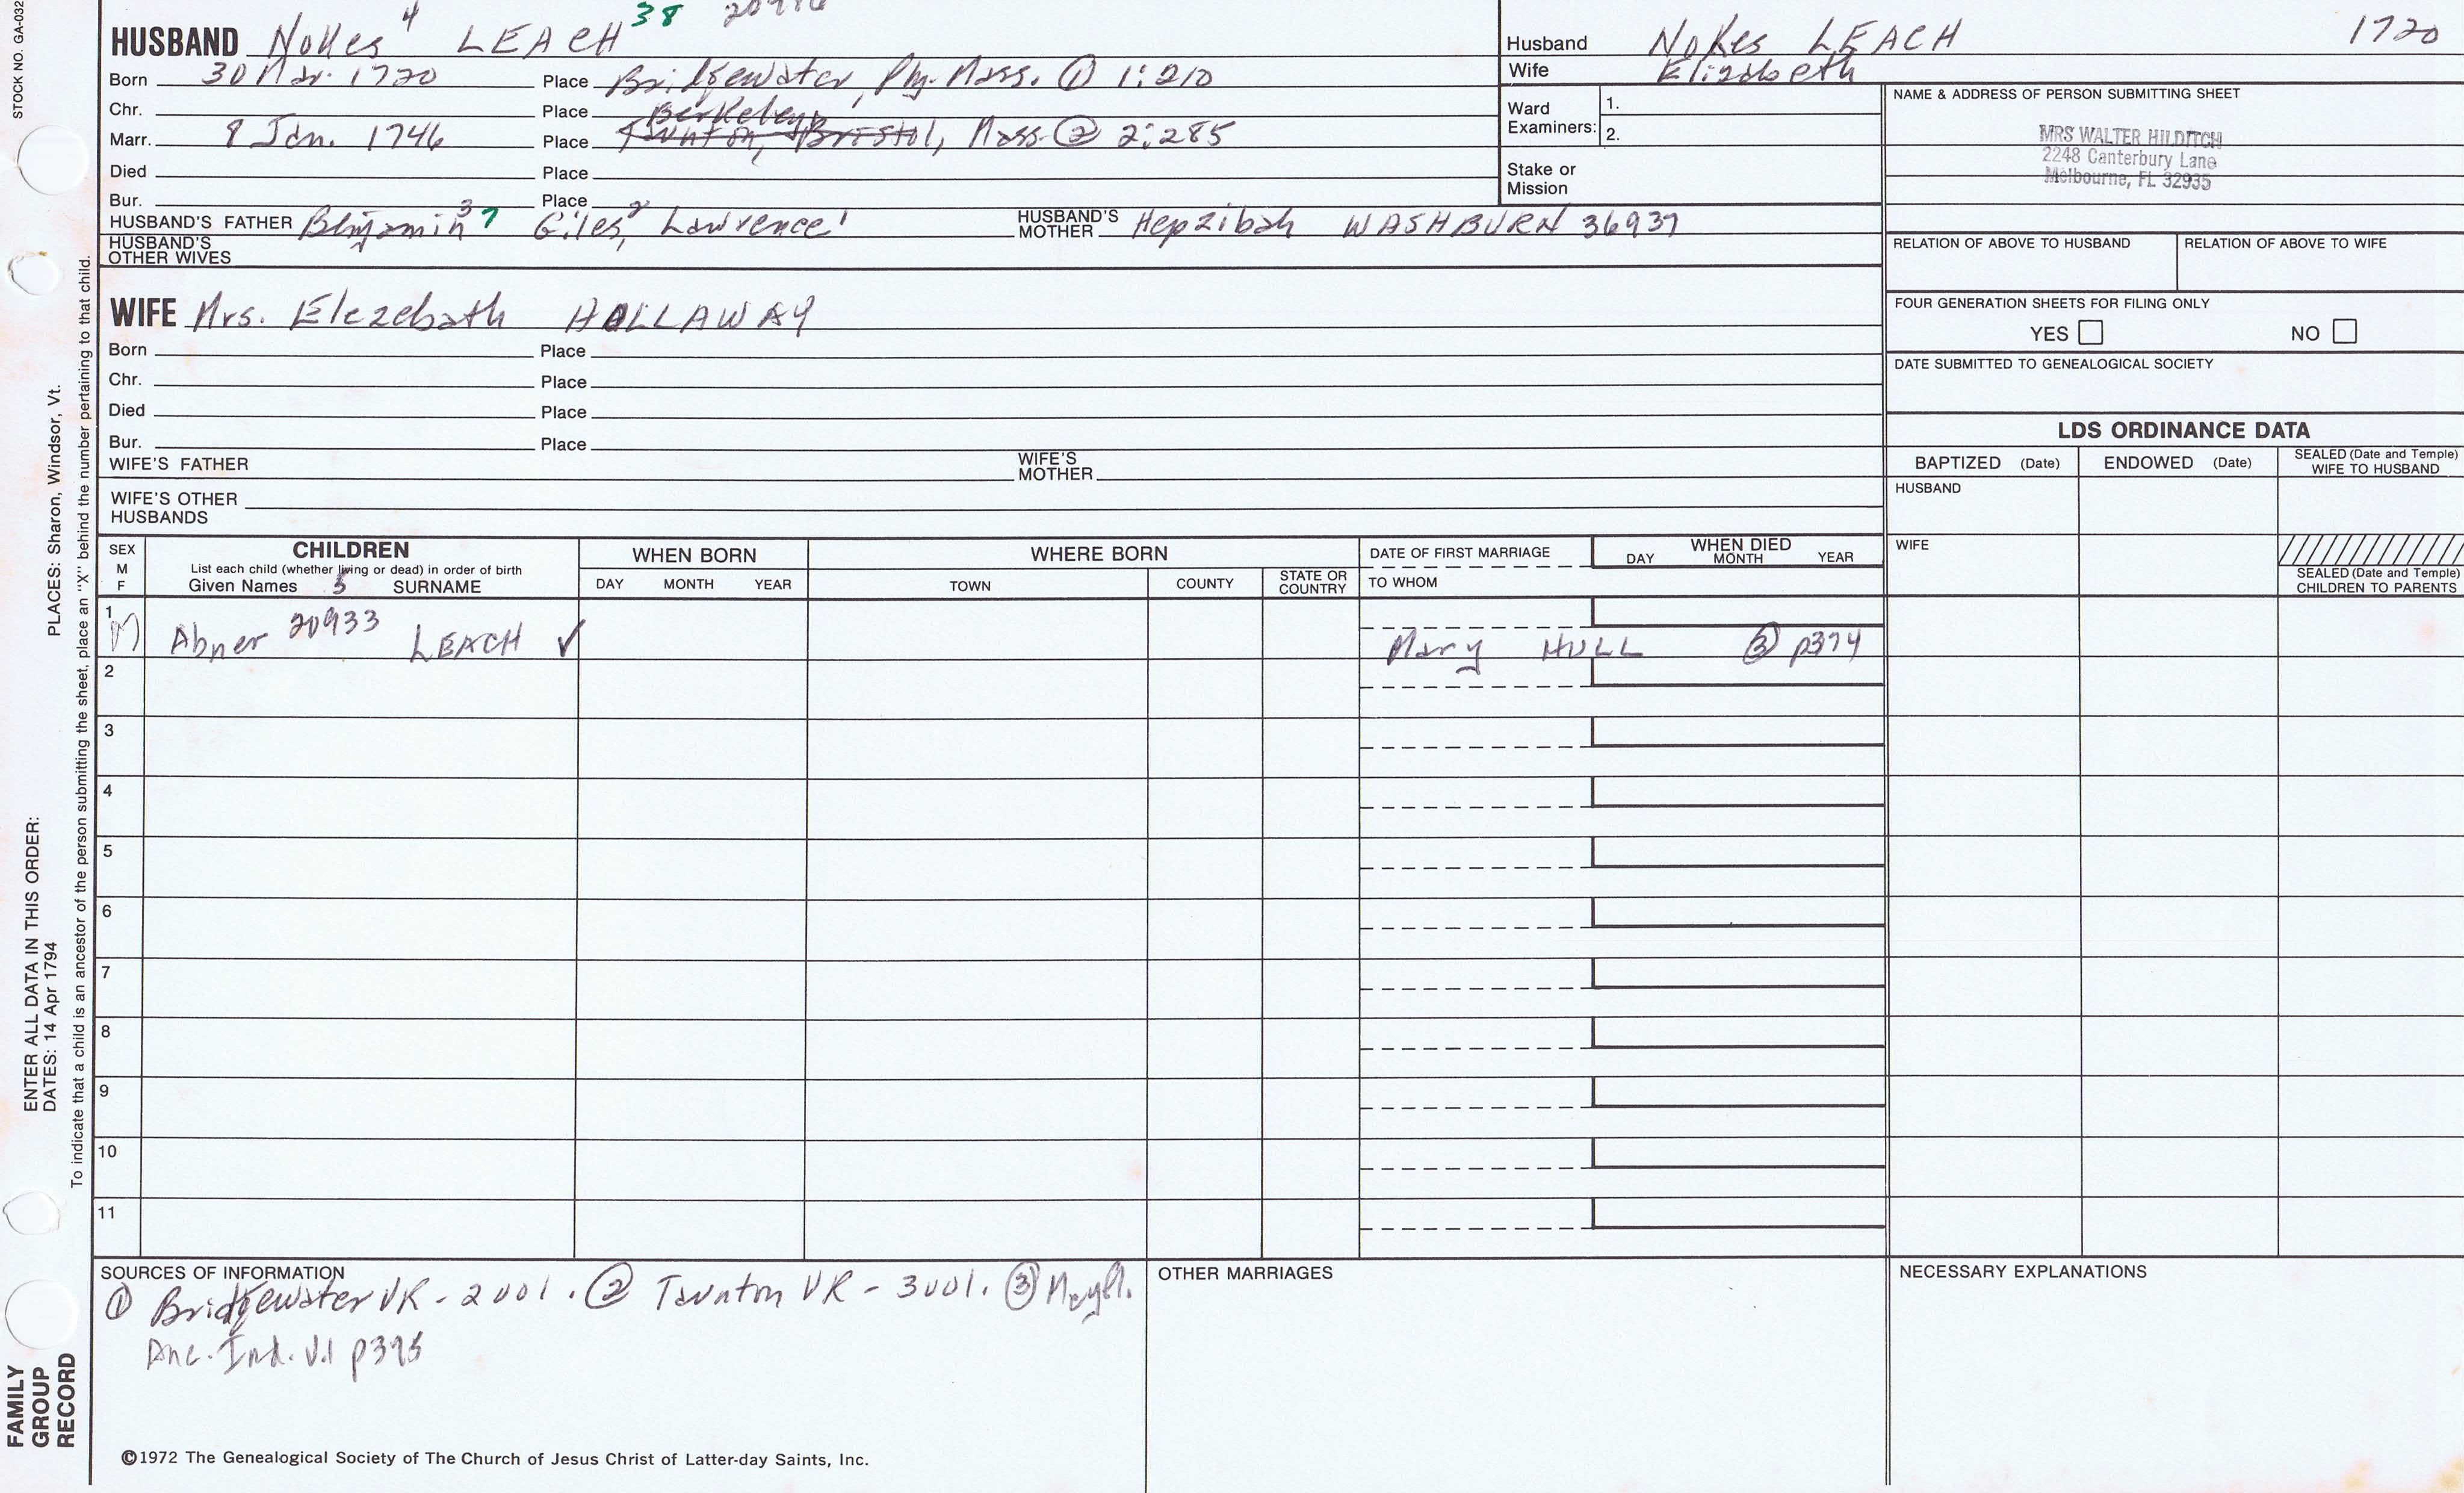 STOCK NO. GA-032
HUSBAND Nokes 4 LEACH 38
Born 30 Mar. 1720 Place Bridgewater, Ply. Mass. ① 1:210
Chr. Place Berkeley,
Marr. 8 Jan. 1746 Place Taunton, Bristol, Mass. ② 2:285
Died Place
Bur. Place
HUSBAND'S FATHER Benjamin 3 7 Giles 2, Lawrence 1 HUSBAND'S MOTHER Hepzibah WASHBURN 36937
HUSBAND'S OTHER WIVES
Husband Nokes LEACH 1720
Wife Elizabeth
Ward Examiners: 1.
2.
Stake or Mission
NAME & ADDRESS OF PERSON SUBMITTING SHEET
MRS WALTER HILDITCH
2248 Canterbury Lane
Melbourne, FL 32935
RELATION OF ABOVE TO HUSBAND RELATION OF ABOVE TO WIFE
FOUR GENERATION SHEETS FOR FILING ONLY
YES NO
DATE SUBMITTED TO GENEALOGICAL SOCIETY
WIFE Mrs. Elezebath HOLLAWAY
Born Place
Chr. Place
Died Place
Bur. Place
WIFE'S FATHER WIFE'S MOTHER
WIFE'S OTHER HUSBANDS
LDS ORDINANCE DATA
BAPTIZED (Date) ENDOWED (Date) SEALED (Date and Temple) WIFE TO HUSBAND
HUSBAND
WIFE
SEALED (Date and Temple) CHILDREN TO PARENTS
SEX M F
CHILDREN
List each child (whether living or dead) in order of birth
Given Names 5 SURNAME
WHEN BORN
DAY MONTH YEAR
WHERE BORN
TOWN COUNTY STATE OR COUNTRY
DATE OF FIRST MARRIAGE
TO WHOM
WHEN DIED
DAY MONTH YEAR
1 M Abner 20933 LEACH ✓ Mary HULL ③ p374
2
3
4
5
6
7
8
9
10
11
SOURCES OF INFORMATION
① Bridgewater VR - 2 vol. ② Taunton VR - 3 vol. ③ Mayfl.
Anc. Ind. V.1 p375
OTHER MARRIAGES
NECESSARY EXPLANATIONS
©1972 The Genealogical Society of The Church of Jesus Christ of Latter-day Saints, Inc.
FAMILY GROUP RECORD
ENTER ALL DATA IN THIS ORDER:
DATES: 14 Apr 1794 PLACES: Sharon, Windsor, Vt.
To indicate that a child is an ancestor of the person submitting the sheet, place an "X" behind the number pertaining to that child.